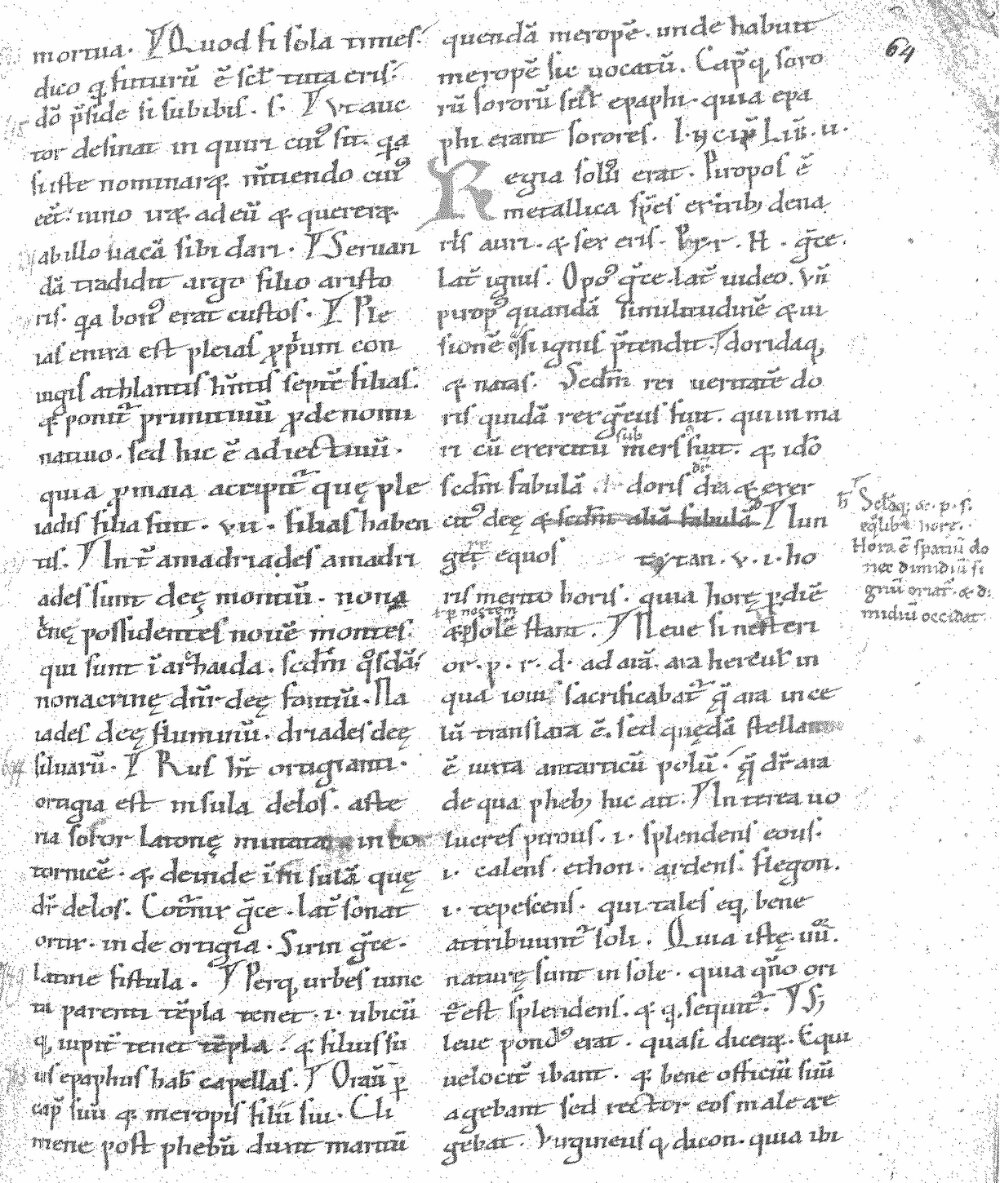 mortua. Quod si sola times.
dico q̄ futurū ē scł tuta eris.
dō p̄side si subibis. s. Vt auc
tor desinat in quiri cui᷒ sit. q̄a
si iste nominaręt. mitiendo cui᷒
eēt. iuno uræ ad eū & quereræ
ab illo uacā sibi dari. Seruan
dā tradidit argo filio aristo
ris. q̄a bon᷒ erat custos. Ple
ias enira est pleias p̱p̄um con
iugis athlantis hn̄tis septē filias.
& ponit᷑ primitiuū p̱ de nomi
natiuo. sed hic ē adiectiuū.
quia p̱ maia accipit᷑ quę ple
iadis filia fuit. vii. filias haben
tis. In t̄ amadriades amadri
ades sunt deę montiū. nona
crię possidentes nouē montes.
qui sunt ī archaida. scdm̄ q̊sdā
nonacrinę dn̄r deę fontiū. Na
iades deę fluminū. driades deę
siluarū. Rus hīt ortigiam.
ortigia est insula delos. aste
na soror latonę mutata in co
tornicē. & deinde ī insulā quę
dr̄ delos. Cotrnix ḡce. lat̄ sonat
ortix. inde ortigia. Sirin ḡce.
latine fistula. Perq, urbes iunc
ta parenti tēpla tenet. i. ubicū
q, iupit̄ tenet tēpla. & filius su
us epaphus hab̄ capellas. Oraū p̄
cap̄ suū & meropis filii sui. Cli
mene post phebū duxit maritū
quendā meropē. unde habuit
meropē sic uocatū. Cap̄q, soro
rū sororū scł epaphi. quia epa
phi erant sorores. Incip̄ Lib̄. ii.
Regia sol᷒ erat. Piropos ē
metallica sp̄es ex trib; dena
riis auri. & sex eris. Pyr. H. ḡce.
lat̄ ignis. Opo᷒ ḡce. lat̄ uideo. Vn̄
pirop᷒ quandā similitudinē & ui
sionē q̊si ignis p̄tendit. doridaq,
& natas. Scdm̄ rei ueritatē do
ris quidā rex grecus fuit. qui in ma
ri cū exercitu submersus fuit. & idō
scdm̄ fabulā doris dr̄ dia & exer
cit᷒ deę & scdm̄ aliā fabulā Iun
gere equos tytan. v. i. ho
ris merito horis. quia horę p̱ diē
ł p̱ noctem
& p̱ solē stant. Neue sinisteri
or. p. r. d. ad arā. ara hercuł in
qua ioui sacrificabat᷑ q̄ ara in ce
lū translata ē. sed quędā stellarum
ē iuxta antarticū polū. q̄ dr̄ ara
de qua pheb; hic ait. Interea uo
lucres pirous. i. splendens eous.
i. calens. ethon. ardens. flegon.
i. tepescens. qui tales eq, bene
attribuunt᷑ soli. Quia istę .iiii.
naturę sunt in sole. quia qn̄o ori
t᷑ est splendens. & q, sequit᷑. S;
leue pond᷒ erat. quasi diceræ. Equi
uelocit᷑ ibant. & bene officiū suū
agebant sed rector eos male re
gebat. Virgineusq, dicon. quia ibi
64
ħ Setaq, ac. p. s.
eqlib᷒ hore.
Hora ē spatiū do
nec dimidiū si
gnū oriat᷑. & di
midiū occidat.